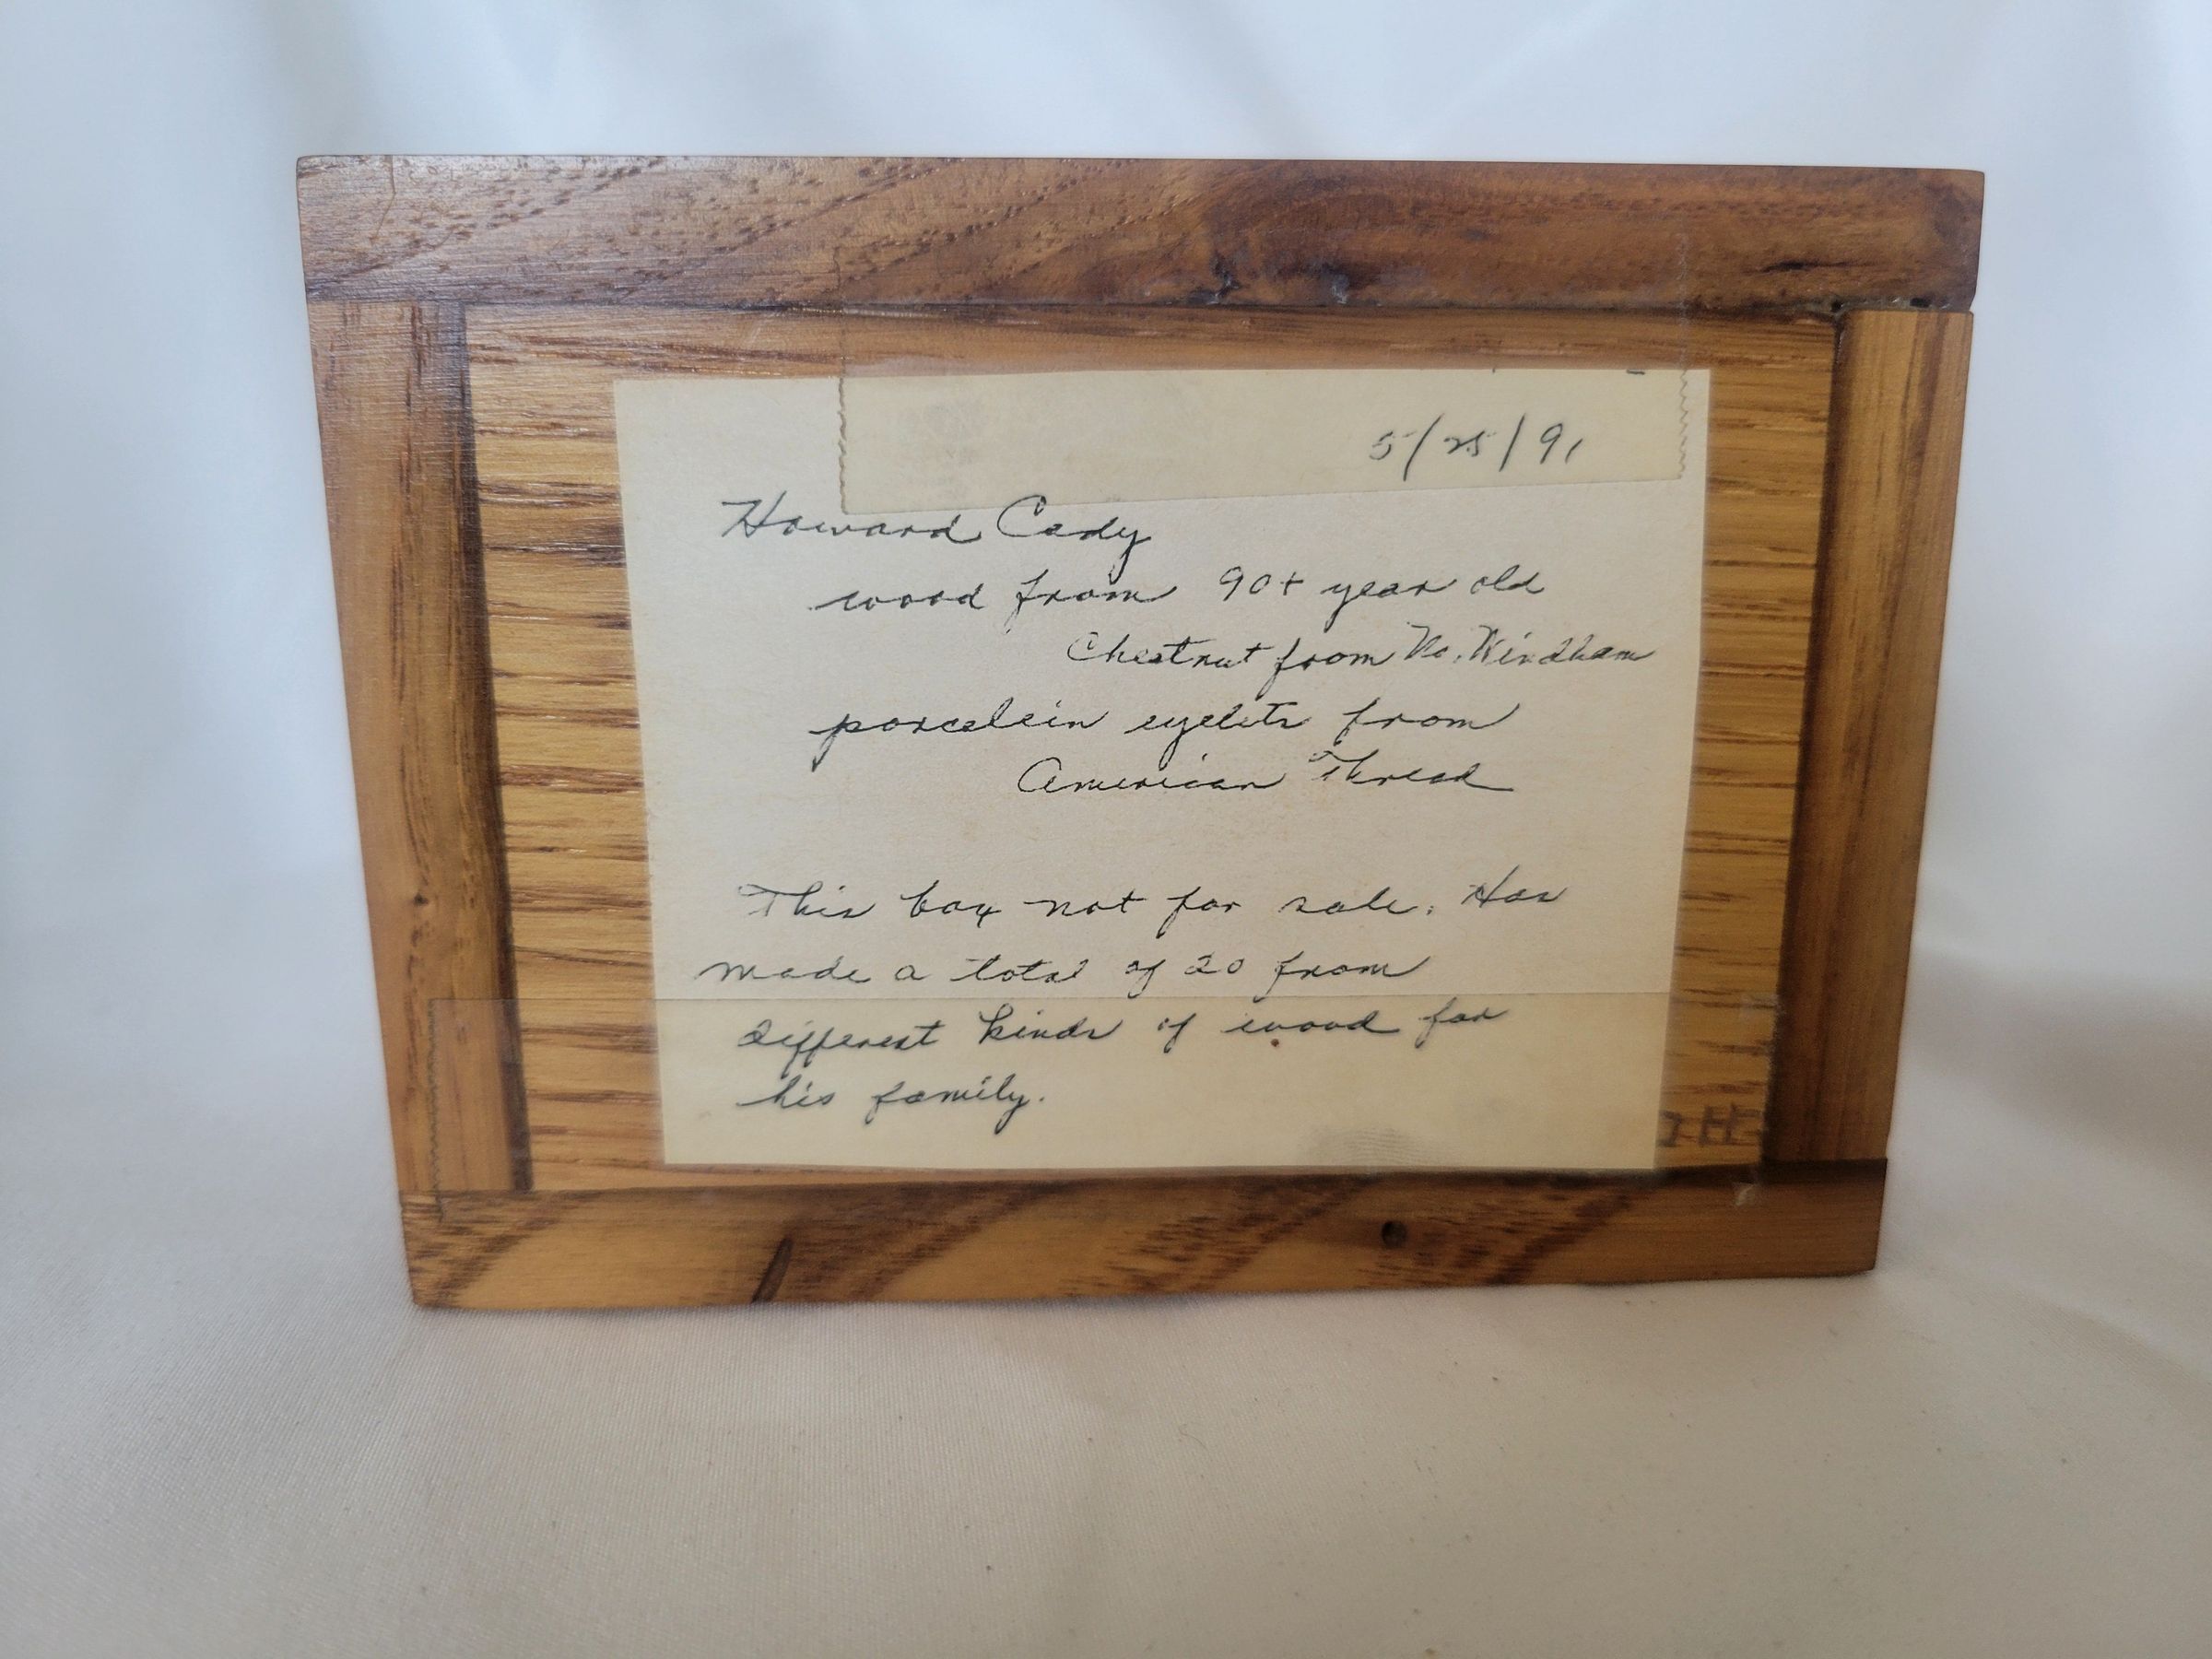 5/25/91
Howard Cady
wood from 90+ year old
Chestnut from No. Windham
porcelein eyelets from
American Thread
This box not for sale. Has
made a total of 20 from
different kinds of wood for
his family.